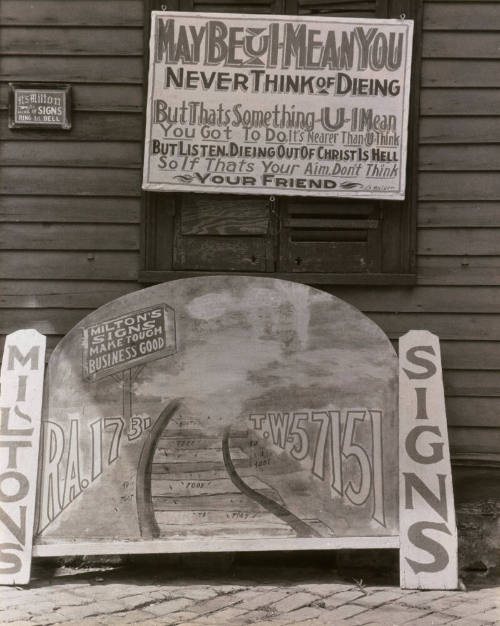 MAYBE U-I-MEAN YOU
NEVER THINK OF DIEING
BUT THATS SOMETHING-U-I MEAN
YOU GOT TO DO. IT'S NEARER THAN U-THINK
BUT LISTEN, DIEING OUT OF CHRIST IS HELL
SO IF THATS YOUR AIM, DON'T THINK
YOUR FRIEND
Milton
SIGNS
RING THE BELL
MILTON'S
SIGNS
MAKE TOUGH
BUSINESS GOOD
R.A. 17
T.W-57151
MILTONS
SIGNS